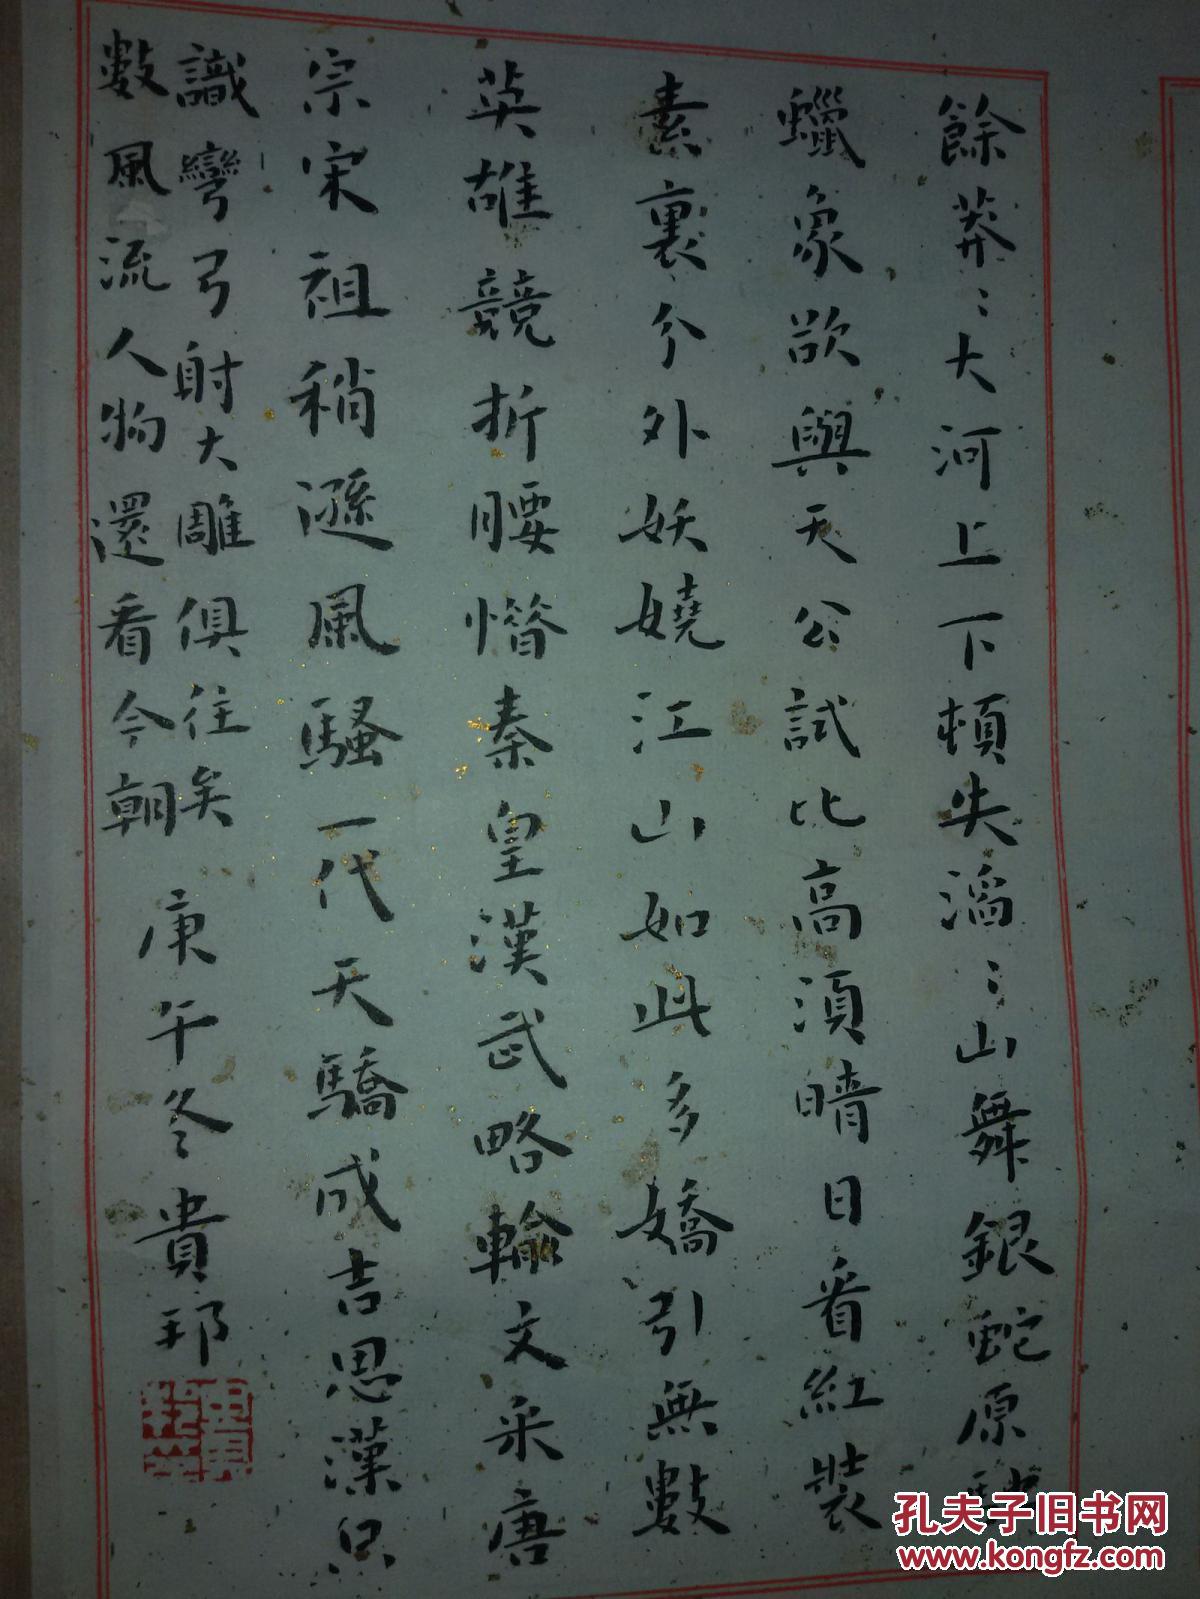 餘莽〻大河上下頓失滔〻山舞銀蛇原馳
蠟象欲與天公試比高須晴日看紅裝
素裹分外妖嬈江山如此多嬌引無數
英雄競折腰惜秦皇漢武略輸文采唐
宗宋祖稍遜風騷一代天驕成吉思漢只
識彎弓射大雕俱往矣
數風流人物還看今朝
庚午冬 貴邦
孔夫子旧书网
www.kongfz.com